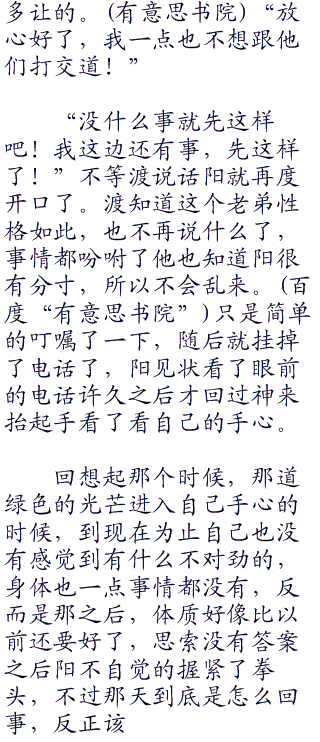 多让的。(有意思书院)“放
心好了，我一点也不想跟他
们打交道！”
“没什么事就先这样
吧！我这边还有事，先这样
了！”不等渡说话阳就再度
开口了。渡知道这个老弟性
格如此，也不再说什么了，
事情都吩咐了他也知道阳很
有分寸，所以不会乱来。(百
度“有意思书院”)只是简单
的叮嘱了一下，随后就挂掉
了电话了，阳见状看了眼前
的电话许久之后才回过神来
抬起手看了看自己的手心。
回想起那个时候，那道
绿色的光芒进入自己手心的
时候，到现在为止自己也没
有感觉到有什么不对劲的，
身体也一点事情都没有，反
而是那之后，体质好像比以
前还要好了，思索没有答案
之后阳不自觉的握紧了拳
头，不过那天到底是怎么回
事，反正该